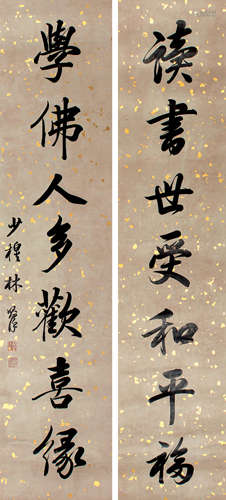 读書世受和平福
學佛人多歡喜緣
少穆林則徐